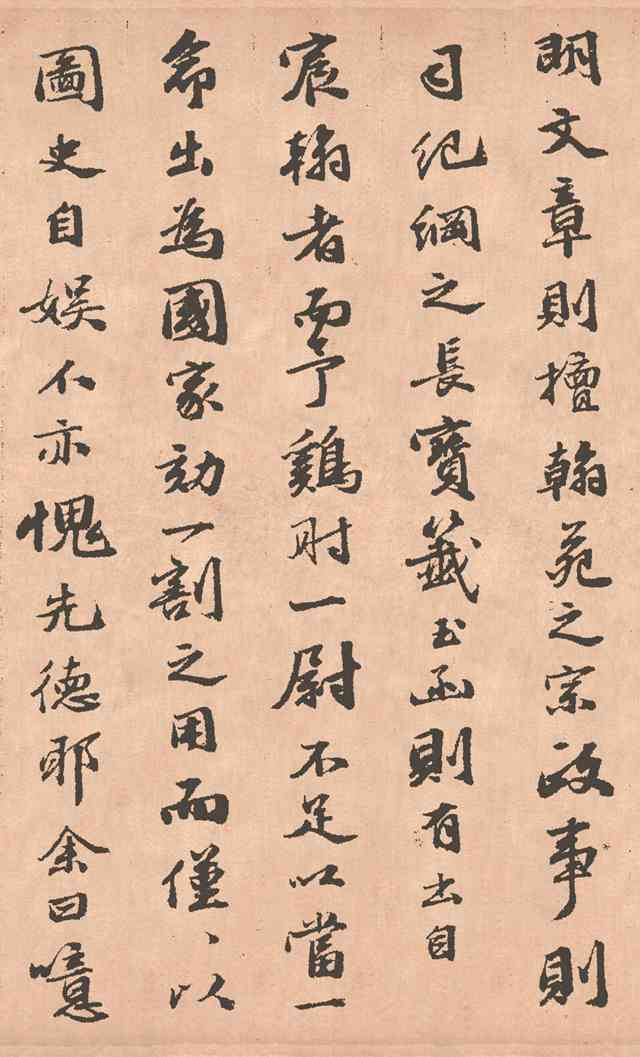 明文章則擅翰苑之宗政事則
司紀綱之長寶籤玉函則有出自
宸翰者而予鷄肘一尉不足以當一
命出為國家効一割之用而僅、以
圖史自娛不亦愧先德耶余曰噫